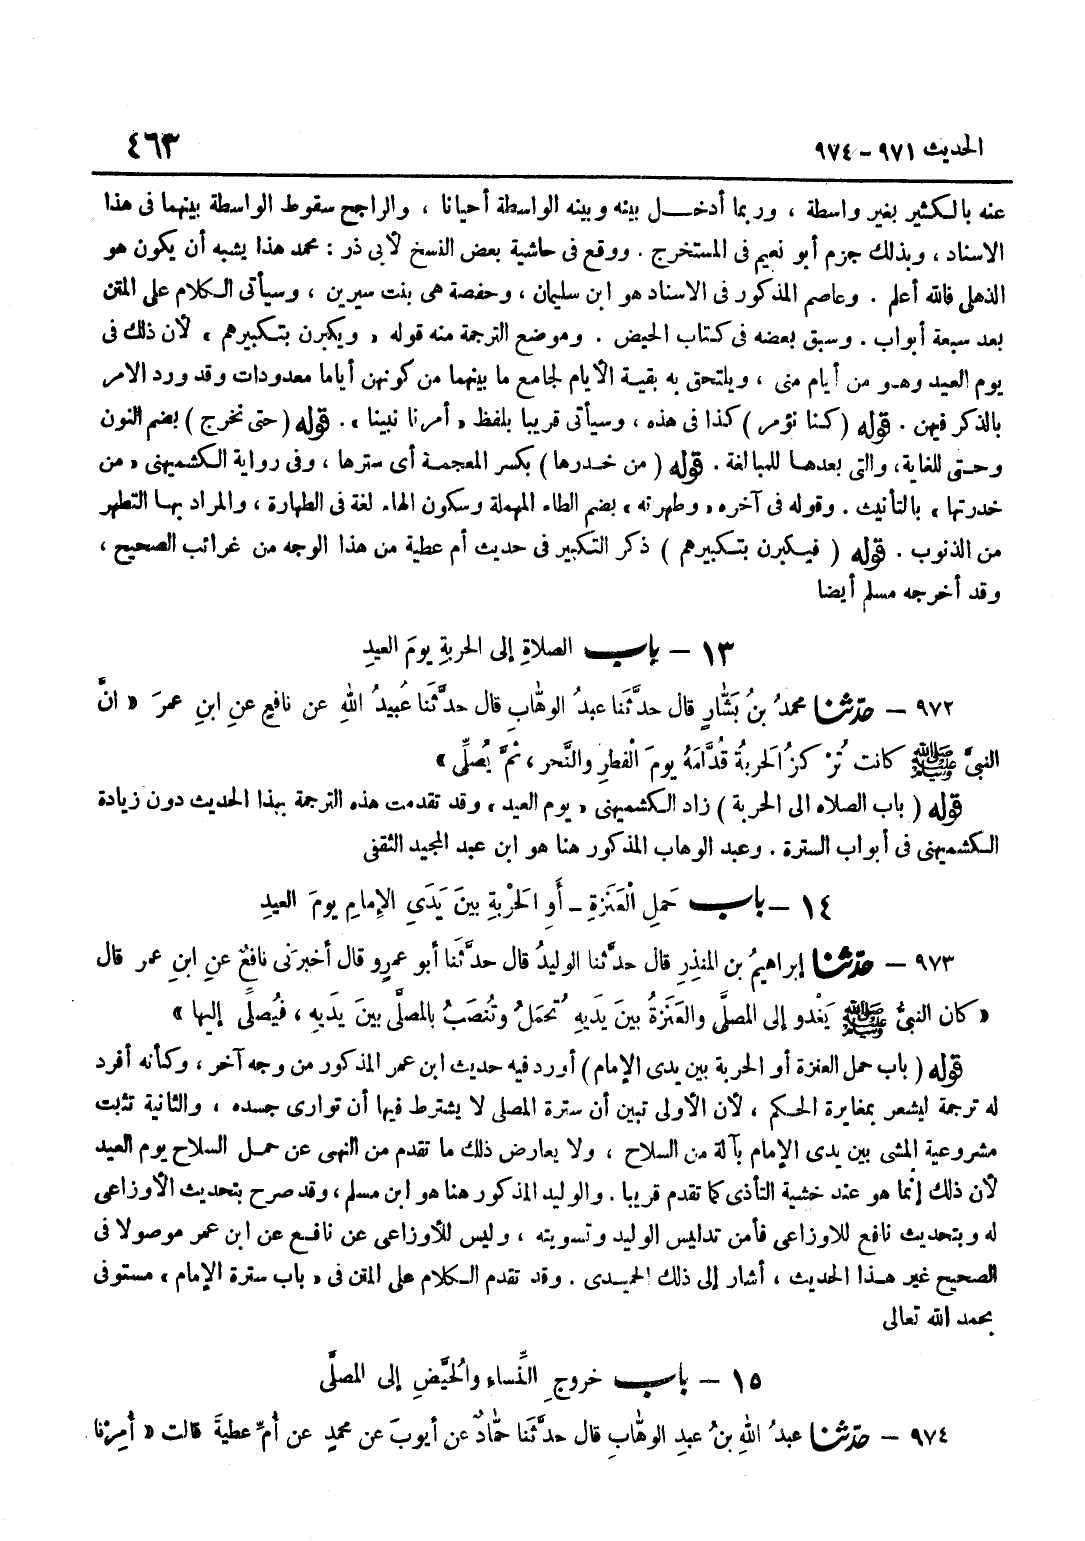 الحديث ٩٧١ - ٩٧٤
٤٦٣
عنه بالكثير بغير واسطة ، وربما أدخل بينه وبينه الواسطة أحيانا ، والراجح سقوط الواسطة بينهما فى هذا
الاسناد ، وبذلك جزم أبو نعيم فى المستخرج . ووقع فى حاشية بعض النسخ لأبى ذر : محمد هذا يشبه أن يكون هو
الذهلى فالله أعلم . وعاصم المذكور فى الاسناد هو ابن سليمان ، وحفصة هى بنت سيرين ، وسيأتى الكلام على المتن
بعد سبعة أبواب . وسبق بعضه فى كتاب الحيض . وموضع الترجمة منه قوله « ويكبرن بتكبيرهم » لأن ذلك فى
يوم العيد وهو من أيام منى ، ويلتحق به بقية الأيام لجامع ما بينهما من كونهن أياما معدودات وقد ورد الامر
بالذكر فيهن . قوله ( كنا نؤمر ) كذا فى هذه ، وسيأتى قريبا بلفظ « أمرنا نبينا » . قوله ( حتى نخرج ) بضم النون
وحتى للغاية ، والتى بعدها للمبالغة . قوله ( من خدرها ) بكسر المعجمة أى سترها ، وفى رواية الكشميهنى « من
خدرتها » بالتأنيث . وقوله فى آخره « وطهرته » بضم الطاء المهملة وسكون الهاء لغة فى الطهارة ، والمراد بها التطهر
من الذنوب . قوله ( فيكبرن بتكبيرهم ) ذكر التكبير فى حديث أم عطية من هذا الوجه من غرائب الصحيح ،
وقد أخرجه مسلم أيضا
١٣ - باب الصلاةِ إلى الحربةِ يومَ العيدِ
٩٧٢ - حدّثنا محمدُ بنُ بَشَّارٍ قال حدَّثَنا عبدُ الوهّابِ قال حدَّثَنا عُبيدُ اللهِ عن نافعٍ عنِ ابنِ عمرَ « انَّ
النبىَّ ﷺ كانت تُرْكَزُ الحَربةُ قُدَّامَهُ يومَ الْفطرِ والنَّحرِ ، ثمَّ يُصلِّى »
قوله ( باب الصلاه الى الحربة ) زاد الكشميهنى « يوم العيد » وقد تقدمت هذه الترجمة بهذا الحديث دون زيادة
الكشميهنى فى أبواب السترة . وعبد الوهاب المذكور هنا هو ابن عبد المجيد الثقفى
١٤ - باب حَملِ الْعَنَزةِ - أَوِ الحَرْبةِ بينَ يَدَىِ الإمامِ يومَ العيدِ
٩٧٣ - حدّثنا إبراهيمُ بن المنذِرِ قال حدَّثنا الوليدُ قال حدَّثَنا أبو عمرٍو قال أخبرَنى نافعٌ عنِ ابنِ عمر قال
« كان النبىُّ ﷺ يَغْدو إلى المصلَّى والعَنَزةُ بينَ يدَيهِ تُحمَلُ وتُنصَبُ بالمصلَّى بينَ يدَيهِ ، فيُصلِّى إليها »
قوله ( باب حمل العنزة أو الحربة بين يدى الإمام ) أورد فيه حديث ابن عمر المذكور من وجه آخر ، وكأنه أفرد
له ترجمة ليشعر بمغايرة الحكم ، لأن الأولى تبين أن سترة المصلى لا يشترط فيها أن توارى جسده ، والثانية تثبت
مشروعية المشى بين يدى الإمام بآلة من السلاح ، ولا يعارض ذلك ما تقدم من النهى عن حمل السلاح يوم العيد
لأن ذلك إنما هو عند خشية التأذى كما تقدم قريبا . والوليد المذكور هنا هو ابن مسلم ، وقد صرح بتحديث الأوزاعى
له وبتحديث نافع للاوزاعى فأمن تدليس الوليد وتسويته ، وليس للأوزاعى عن نافع عن ابن عمر موصولا فى
الصحيح غير هذا الحديث ، أشار إلى ذلك الحميدى . وقد تقدم الكلام على المتن فى « باب سترة الإمام » مستوفى
بحمد الله تعالى
١٥ - باب خروجِ النِّساءِ والحُيَّضِ إلى المصلَّى
٩٧٤ - حدّثنا عبدُ اللهِ بنُ عبدِ الوهّابِ قال حدَّثَنا حمّادٌ عن أيوبَ عن محمدٍ عن أُمِّ عطيةَ قالت « أُمِرْنا